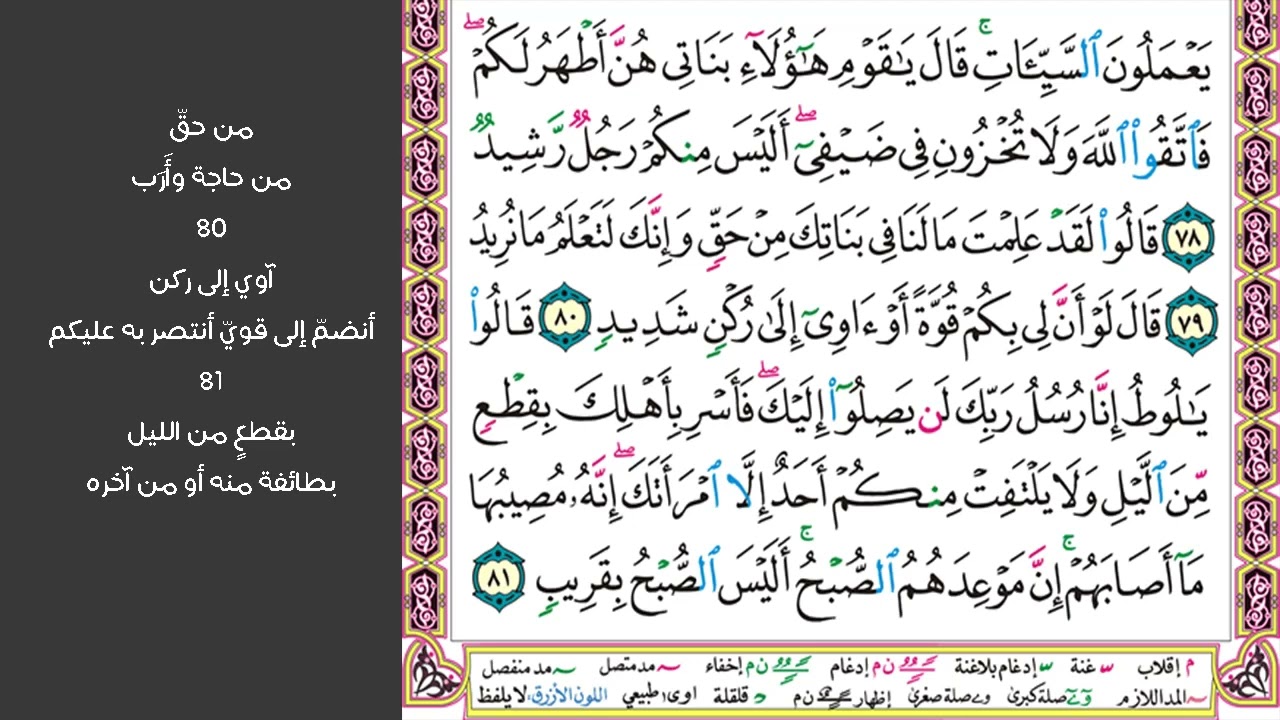 من حقّ
من حاجة وأَرَب
80
آوي إلى ركن
أنضمّ إلى قويّ أنتصر به عليكم
81
بقطعٍ من الليل
بطائفة منه أو من آخره
يَعْمَلُونَ ٱلسَّيِّـَٔاتِ ۚ قَالَ يَٰقَوْمِ هَٰٓؤُلَآءِ بَنَاتِى هُنَّ أَطْهَرُ لَكُمْ ۖ
فَٱتَّقُوا۟ ٱللَّهَ وَلَا تُخْزُونِ فِى ضَيْفِىٓ ۖ أَلَيْسَ مِنكُمْ رَجُلٌ رَّشِيدٌ
٧٨ قَالُوا۟ لَقَدْ عَلِمْتَ مَا لَنَا فِى بَنَاتِكَ مِنْ حَقٍّ وَإِنَّكَ لَتَعْلَمُ مَا نُرِيدُ
٧٩ قَالَ لَوْ أَنَّ لِى بِكُمْ قُوَّةً أَوْ ءَاوِىٓ إِلَىٰ رُكْنٍ شَدِيدٍ ٨٠ قَالُوا۟
يَٰلُوطُ إِنَّا رُسُلُ رَبِّكَ لَن يَصِلُوٓا۟ إِلَيْكَ ۖ فَأَسْرِ بِأَهْلِكَ بِقِطْعٍ
مِّنَ ٱلَّيْلِ وَلَا يَلْتَفِتْ مِنكُمْ أَحَدٌ إِلَّا ٱمْرَأَتَكَ ۖ إِنَّهُۥ مُصِيبُهَا
مَآ أَصَابَهُمْ ۚ إِنَّ مَوْعِدَهُمُ ٱلصُّبْحُ ۚ أَلَيْسَ ٱلصُّبْحُ بِقَرِيبٍ ٨١
م إقلاب غنة إدغام بلاغنة ن م إدغام ن م إخفاء مد متصل مد منفصل
المد اللازم صلة كبرى صلة صغرى إظهار ن م قلقلة اوى طبيعي اللون الأزرق، لا يلفظ